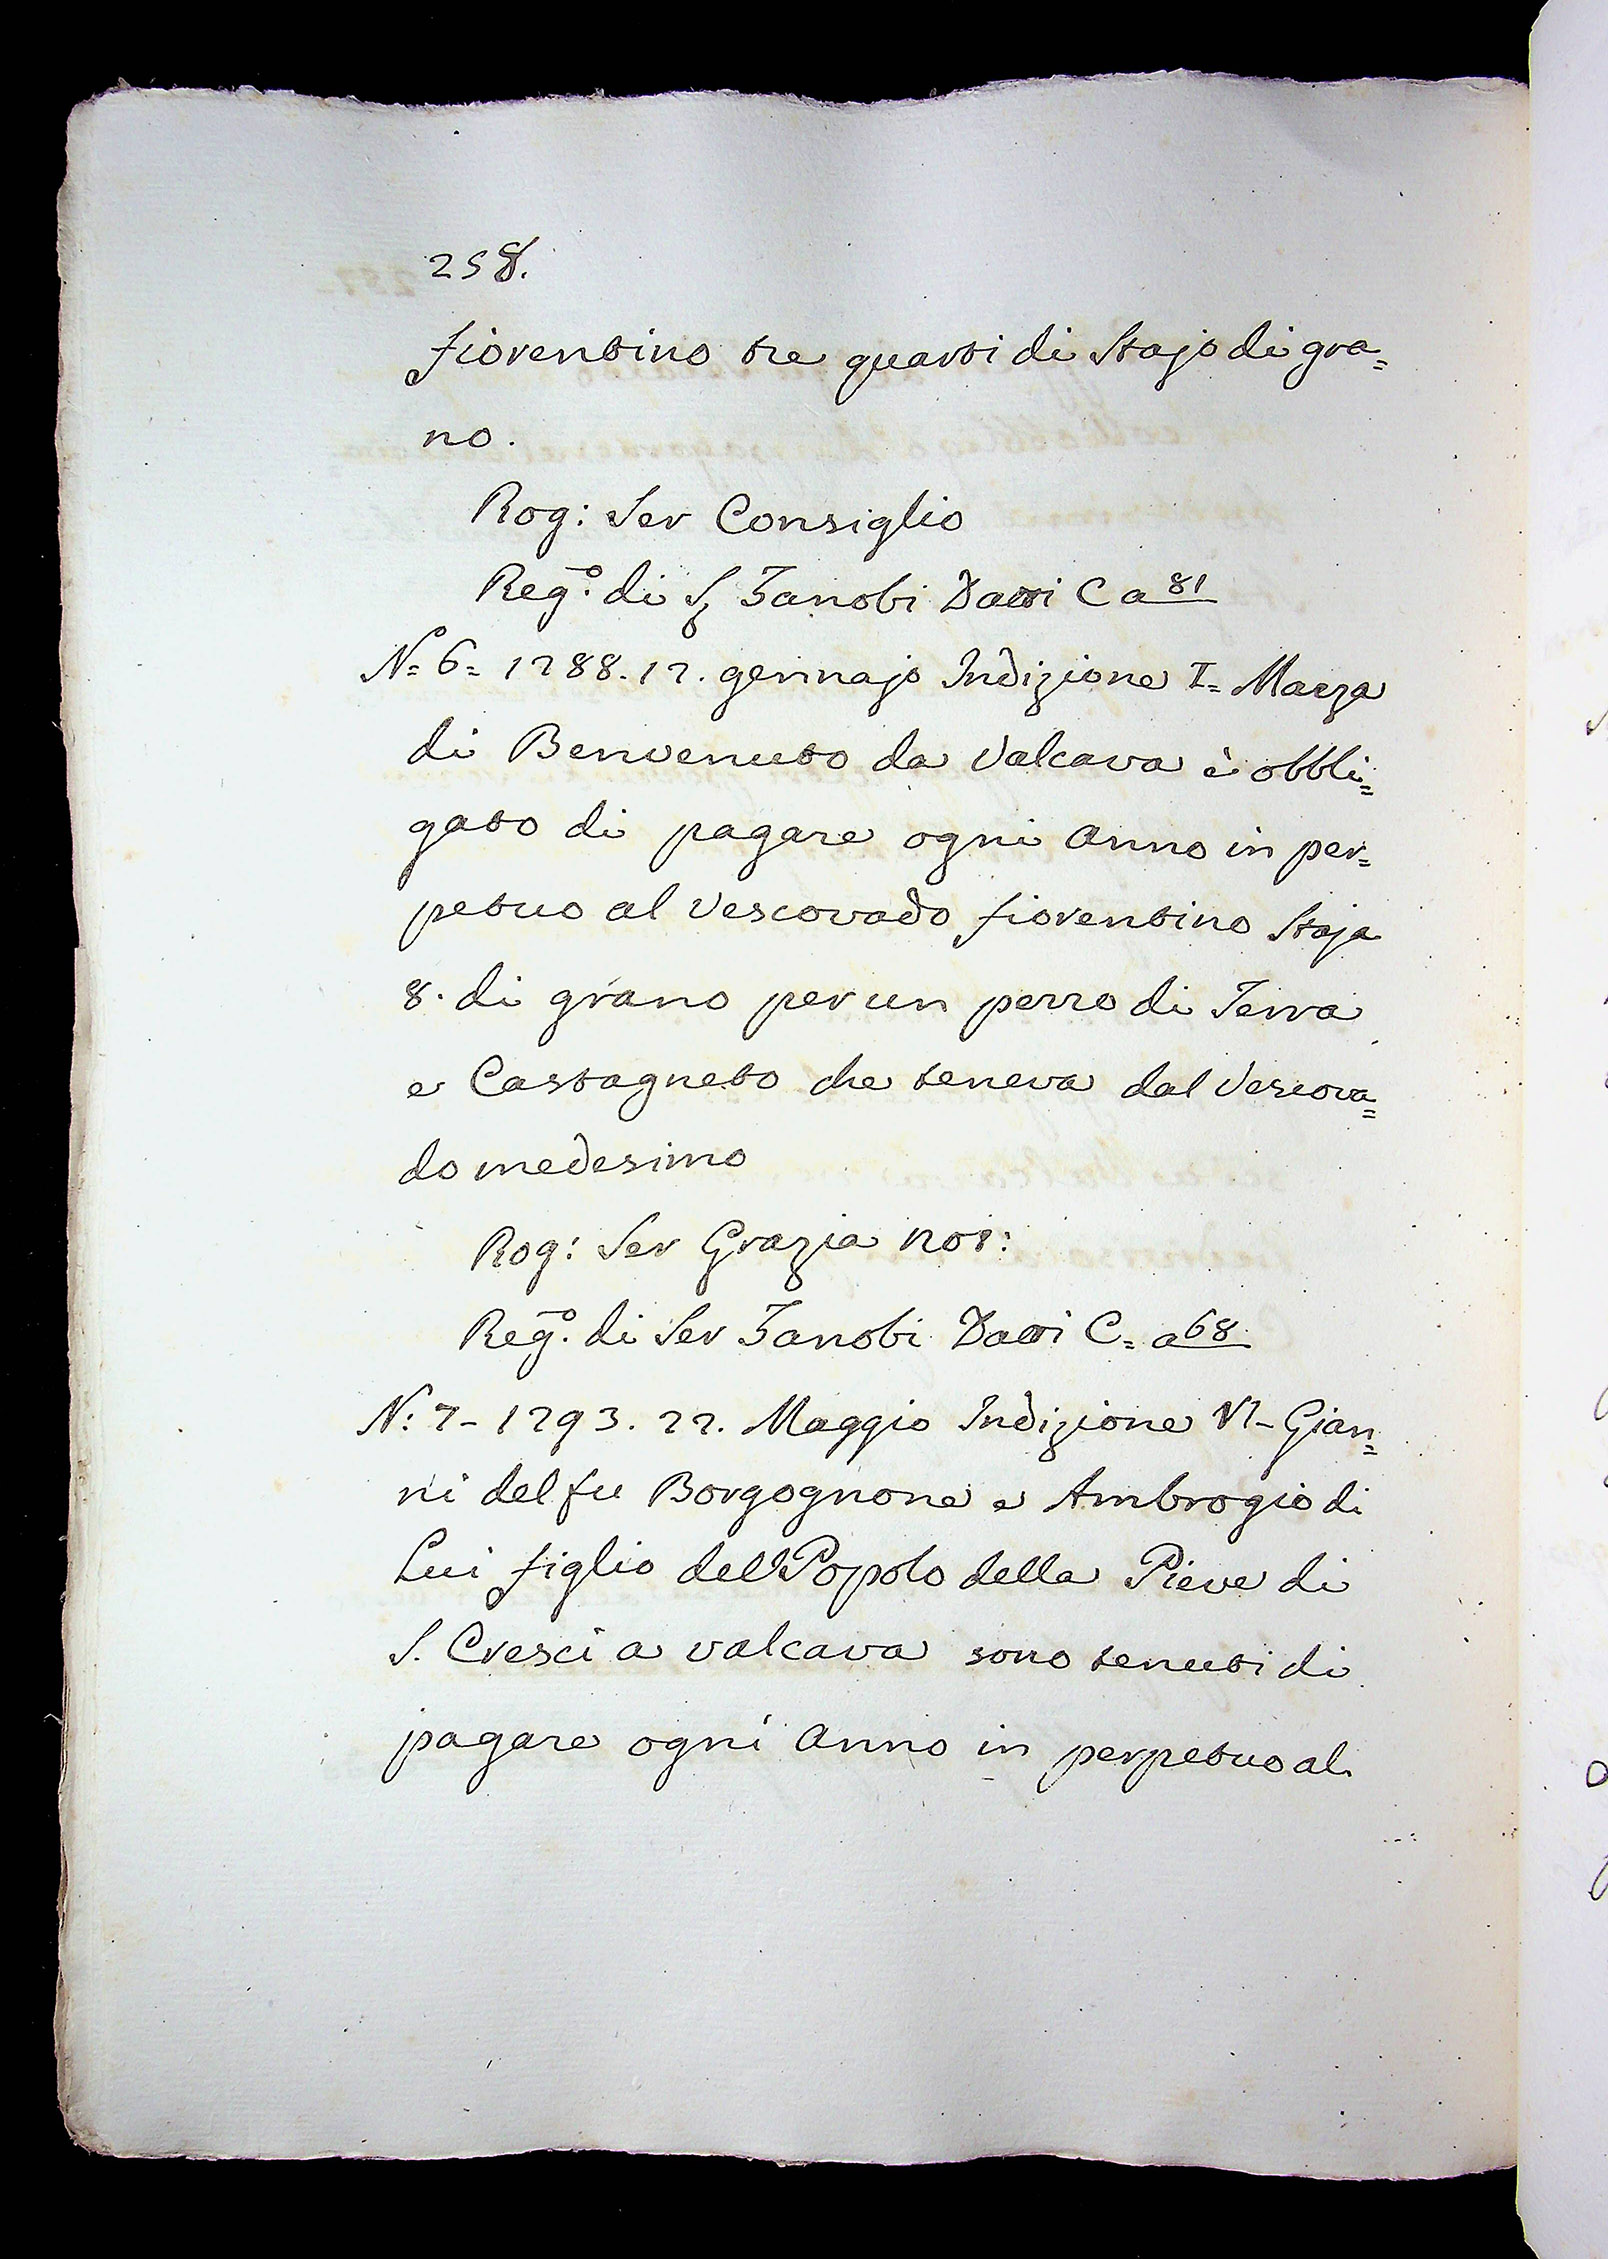 258.
fiorentino tre quarti di Stajo di gra=
no.
Rog: Ser Consiglio
Reg.º di S. Zanobi Datti C a 81
N= 6= 1288. 12. gennajo Indizione I= Mazza
di Benvenuto da Valcava è obbli=
gato di pagare ogni Anno in per=
petuo al Vescovado fiorentino Staja
8. di grano per un pezzo di Terra
e Castagneto che teneva dal Vescova=
do medesimo
Rog: Ser Grazia not:
Reg.º di Ser Zanobi Datti C= a 68.
N: 7- 1293. 22. Maggio Indizione VI- Gian=
ni del fu Borgognone e Ambrogio di
Lui figlio dell Popolo della Pieve di
S. Cresci a valcava sono tenuti di
pagare ogni Anno in perpetuo al